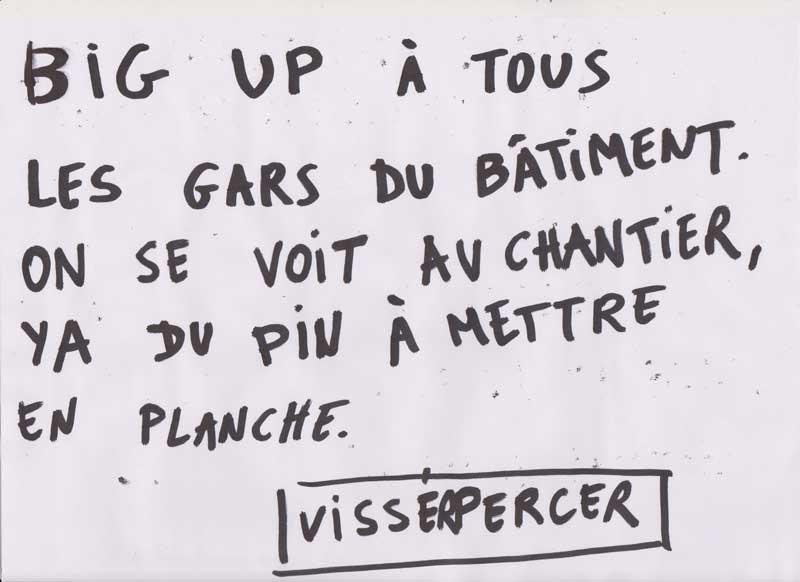 BiG UP À TOUS
LES GARS DU BÂTiMENT.
ON SE VOiT AU CHANTiER,
YA DU PIN À METTRE
EN PLANCHE.
ViSSÉRPERCER